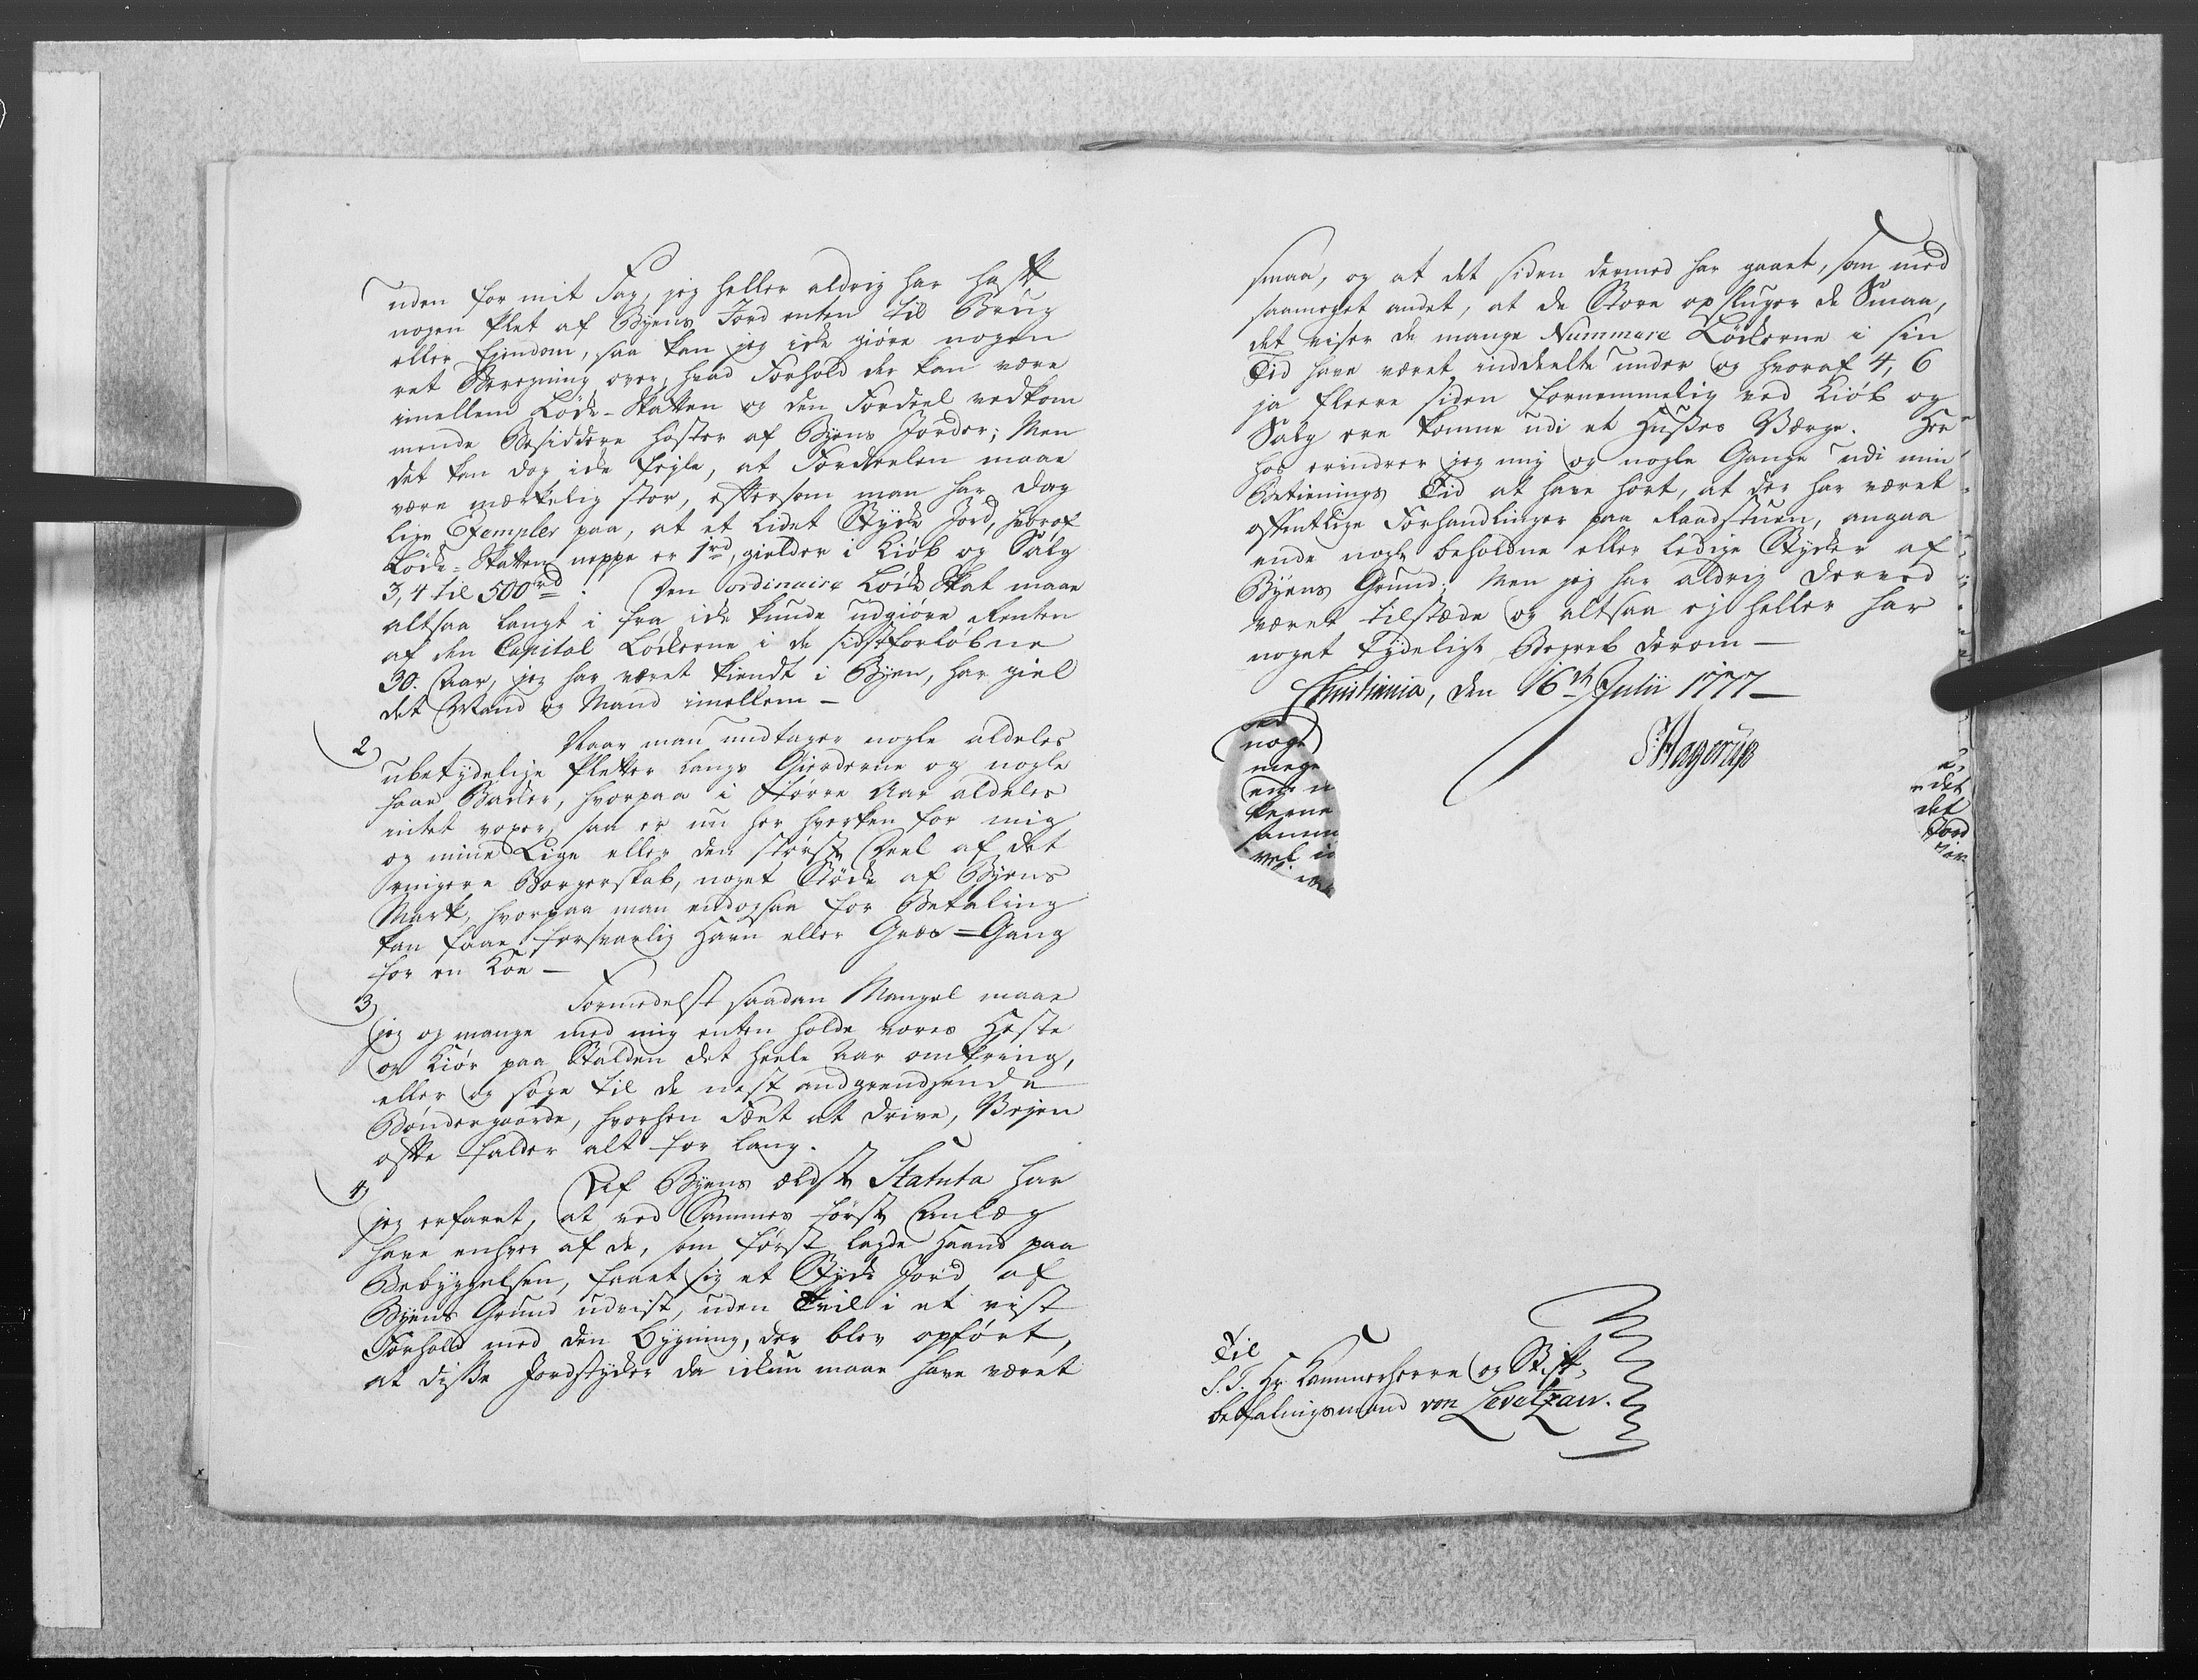 uden for mit Fag, jeg heller aldrig har hafft
nogen Plet af Byens Jord enten til Brug
eller Ejendom, saa kan jeg icke giøre nogen
ret Beregning over, hvad Forhold der kan være
imellem Løcke-Skatten og den Fordeel vedkom
mende Besiddere høster af Byens Jorder; Men
det kan dog icke fejle, at Fordeelen maae
være mærkelig stor, eftersom man har dag
lige Exempler paa, at et lidet Stycke Jord, hvoraf
Løcke-Skatten neppe er 1rd, gielder i Kiøb og Salg
3, 4 til 500rd. Den ordinaire Løcke Skat maae
altsaa langt i fra icke kunde udgiøre Renten
af den Capital Løckerne i de sidstforløbne
30. Aar, jeg har været kiendt i Byen, har giel
det Mand og Mand imellem —
2) Naar man undtager nogle aldeles
ubetydelige Pletter langs Gierderne og nogle
haar Backer, hvorpaa i Større Aar aldeles
intet voxer, saa er nu her hverken for mig
og mine Lige eller den største Deel af det
ringere Borgerskab, noget Støcke af Byens
Mark, hvorpaa man endogsaa for Betaling
kan faae forsvarlig Havn eller Græs-Gang
for en Koe —
3) Formedelst saadan Mangel maae
jeg og mange med mig enten holde vores Heste
og Kiør paa Stalden det heele Aar omkring,
eller og søge til de nest andgrendsende
Bøndergaarde, hvorhen Fæet at drive, Vejen
ofte falder alt for lang.
4) Af Byens ældste Statuta har
jeg erfaret, at ved Sammes første Anlæg
have enhver af de, som først lagde Haand paa
Bebyggelsen, faaet sig et Stycke Jord af
Byens Grund udvist, uden Tvil i et vist
Forhold med den Bygning, der blev opført,
at disse Jordstycker da ickun maae have været
smaa, og at det siden dermed har gaaet, som med
saameget andet, at de Store opsluger de Smaa,
det viser de mange Nummere Løckerne i sin
Tid have været inddeelte under og hvoraf 4, 6
ja fleere siden fornemmelig ved Kiøb og
Salg ere komne udi et Huses Værge. Her
hos erindrer jeg mig og nogle Gange udi min
Betienings Tid at have hørt, at der har været
offentlige Forhandlinger paa Raadstuen, angaa
ende nogle beholdne eller ledige Stycker af
Byens Grund; Men jeg har aldrig derved
været tilstæde og altsaa ej heller har
noget tydeligt Begreb derom —
Christiania, den 16th Julii 1777 —
Hagerup
nogl
mege
ene n
kerne
samm
vel i
det
det
Jord
Til
S. T. Hr. Kammerherre og Stift
befalingsmand von Levetzau.